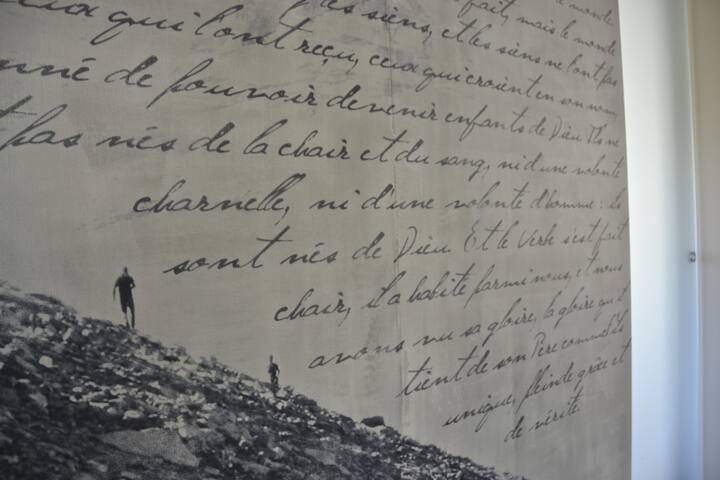 fait, mais le monde
les siens, et les siens ne l'ont pas
ceux qui l'ont reçu, ceux qui croient en son nom,
de pouvoir devenir enfants de Dieu. Ils ne
pas nés de la chair et du sang, ni d'une volonté
charnelle, ni d'une volonté d'homme : ils
sont nés de Dieu. Et le Verbe s'est fait
chair, il a habité parmi nous, et nous
avons vu sa gloire, la gloire qu'il
tient de son Père comme Fils
unique, plein de grâce et
de vérité.